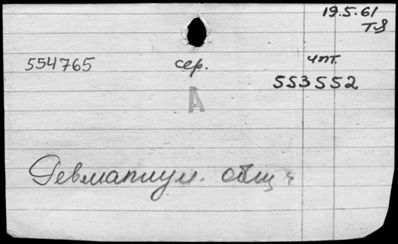 19.5.61
Т-8
554765 сер. чт.
553552
А
Девматиум. общ